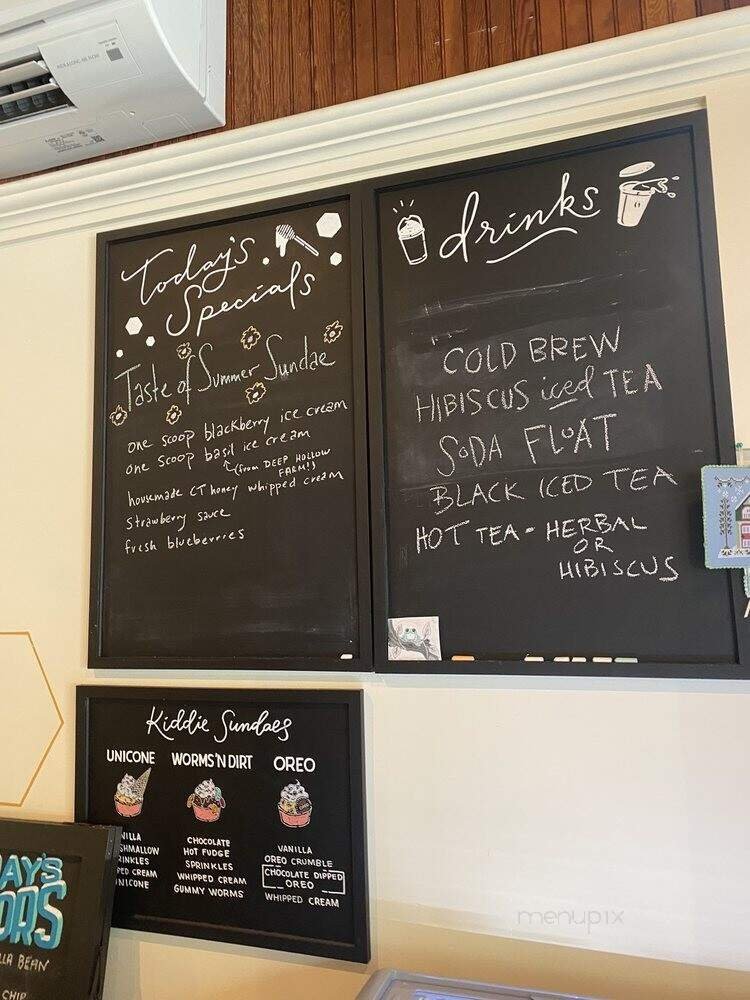 Today's
Specials
Taste of Summer Sundae
one scoop blackberry ice cream
one scoop basil ice cream
(from DEEP HOLLOW
FARM!)
housemade CT honey whipped cream
strawberry sauce
fresh blueberries
drinks
COLD BREW
HIBISCUS iced TEA
SODA FLOAT
BLACK ICED TEA
HOT TEA - HERBAL
OR
HIBISCUS
Kiddie Sundaes
UNICONE
NILLA
SHMALLOW
RINKLES
PED CREAM
NICONE
WORMS 'N DIRT
CHOCOLATE
HOT FUDGE
SPRINKLES
WHIPPED CREAM
GUMMY WORMS
OREO
VANILLA
OREO CRUMBLE
CHOCOLATE DIPPED
OREO
WHIPPED CREAM
AY'S
ORS
LLA BEAN
CHIP
menupix